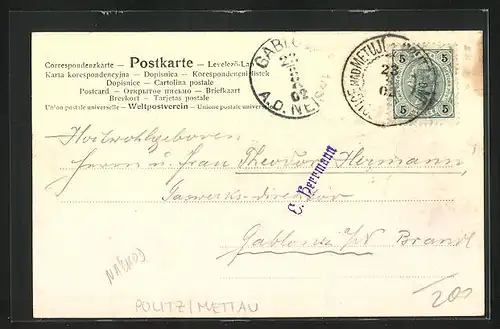 Correspondenzkarte — Postkarte — Levelező-Lap
Karta korespondencyjna — Dopisnica — Korespondenční lístek
Dopisnice — Cartolina postale
Postcard — Открытое письмо — Briefkaart
Brevkort — Tarjetas postale
Union postale universelle — Weltpostverein — Unione postale universale
GABLONZ
A.D. NEISSE
02
23
02
5 5
Hochwohlgeboren
Herrn u. Frau Theodor Hermann,
Gaswerks-direktor
C. Herrmann
Gablonz a/N Brandl
POLITZ/METTAU
20